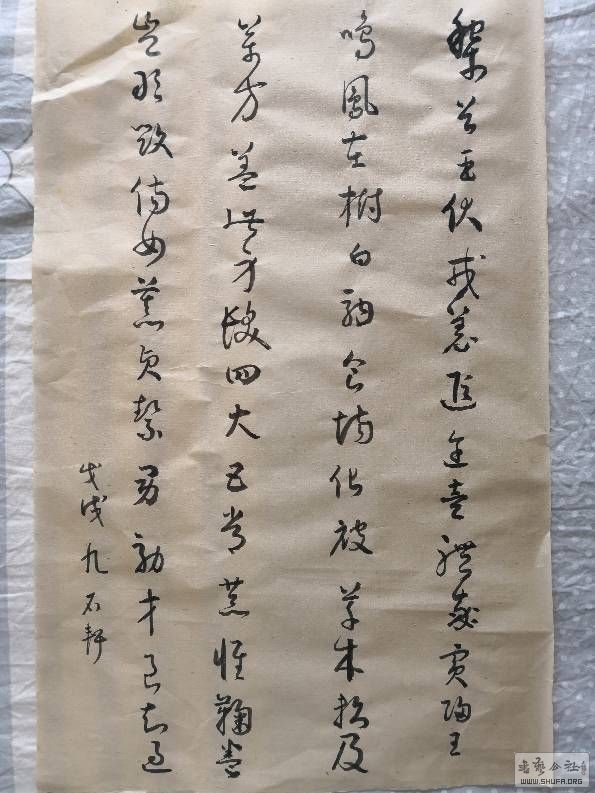 黎首臣伏戎羌遐迩壹體率賓歸王
鳴鳳在樹白駒食場化被草木賴及
萬方蓋此身髮四大五常恭惟鞠養
豈敢毀傷女慕貞絜男效才良知過
戊戌九石軒
书艺公社
WWW.SHUFA.ORG